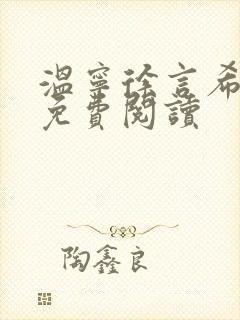 温寧徐言希
免費閱讀
陶鑫良